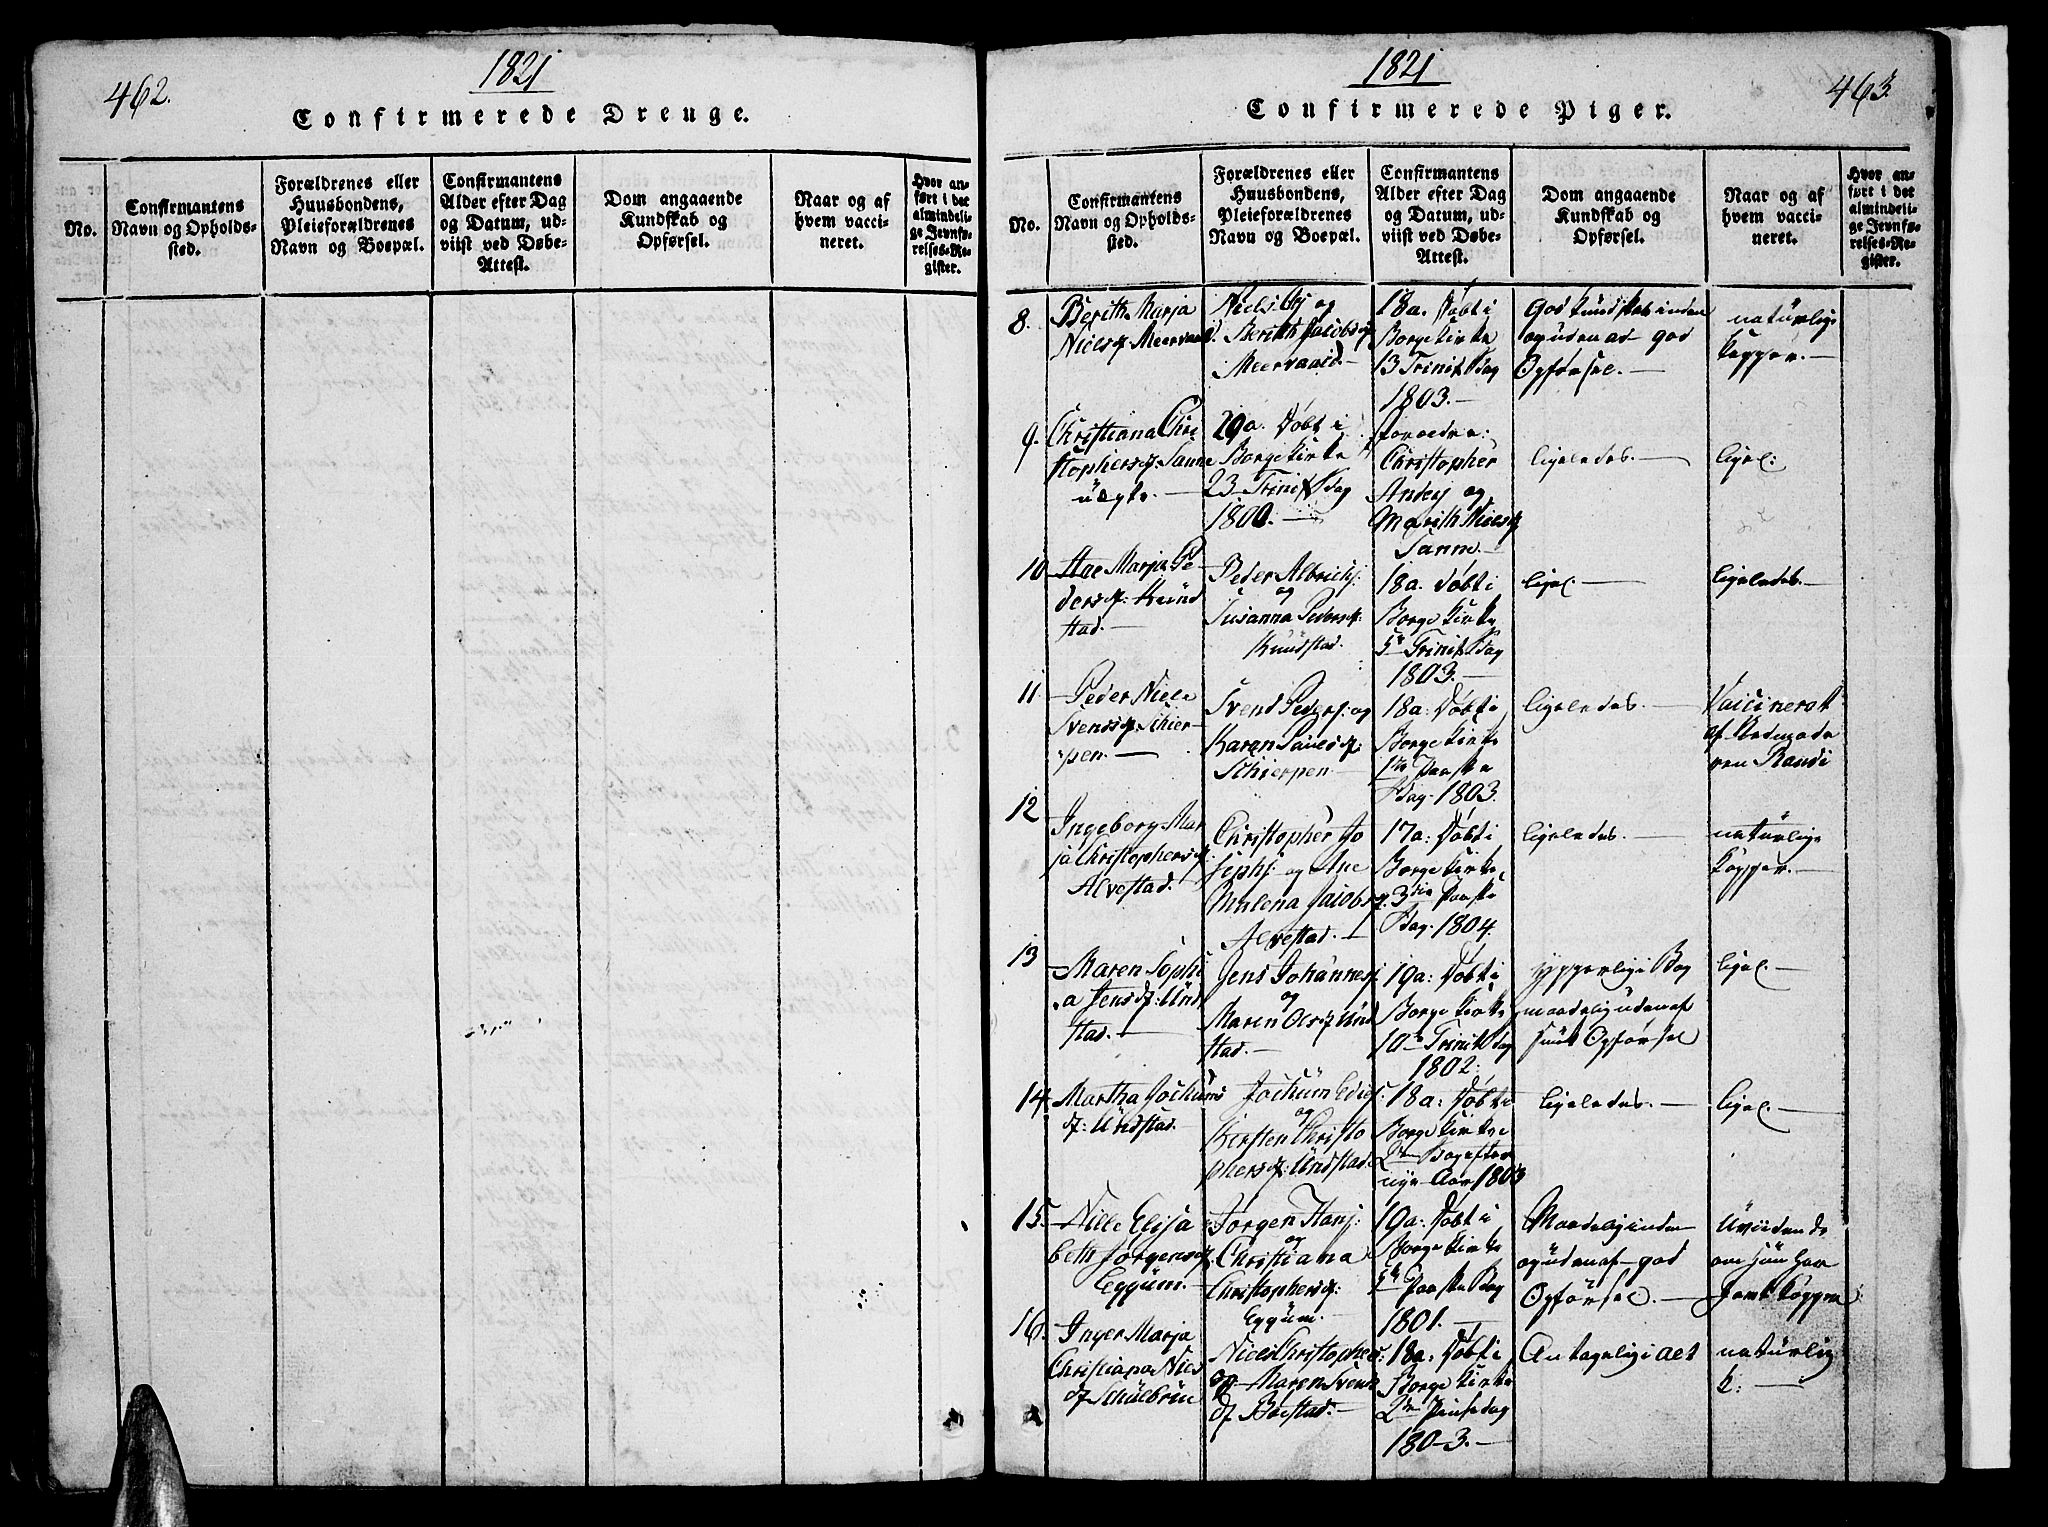 462.
1821
Confirmerede Drenge.
No.
Confirmantens
Navn og Opholds-
sted.
Forældrenes eller
Huusbondens,
Pleieforældrenes
Navn og Boepæl.
Confirmantens
Alder efter Dag
og Datum, ud-
viist ved Døbe-
Attest.
Dom angaaende
Kundskab og
Opførsel.
Naar og af
hvem vacci-
neret.
Hvor an-
ført i det
almindeli-
ge Jevnfø-
relses-Re-
gister.
1821
463.
Confirmerede Piger.
No.
Confirmantens
Navn og Opholds-
sted.
Forældrenes eller
Huusbondens,
Pleieforældrenes
Navn og Boepæl.
Confirmantens
Alder efter Dag
og Datum, ud-
viist ved Døbe-
Attest.
Dom angaaende
Kundskab og
Opførsel.
Naar og af
hvem vacci-
neret.
Hvor an-
ført i det
almindeli-
ge Jevnfø-
relses-Re-
gister.
8.
Berith Marja
Nielsd Meervaald.
Niels og
Berith Jacobsd
Meervaald
18a. Døbt i
Borge Kirke
13 Trinit Sdag
1803.
God Kundskab inden
og udenad god
Opførsel.
naturlige
Kopper.
9.
Christiana Chri
stophersd: Sanne
uægte.
20a. Døbt i
Borge Kirke
23 Trinit Sdag
1800.
Forældre:
Christopher
Andersj og
Marith Nielsd
Sanne.
ligeledes.
ligel:
10
Ane Marja Pe
dersd: Knud
stad.
Peder Albrichsj.
og
Susanna Pedersd:
Knudstad.
18a. Døbt i
Borge Kirke
5te Trinit Sdag
1803.
ligel.
ligeledes.
11.
Peder Niele
Svensd: Schier-
pen.
Svend Pedersj. og
Karen Pauelsd:
Schierpen.
18a: Døbt i
Borge Kirke
1te Paaske
dag. 1803.
ligeledes.
Vaccineret
af
Randi
12
Ingeborg Mar
ja Christophersd:
Alvestad.
Christopher Jo
sephsj: og Ane
Malena Jacobsd
Alvestad.
17a: Døbt i
Borge Kirke
3die Paaske
dag. 1804.
ligeledes.
naturlige
Kopper.
13
Maren Sophi
a Jensd: Und
stad.
Jens Johannesj
og
Maren Olsd Und
stad.
19a: Døbt i
Borge Kirke
10de Trinit Sdag
1802.
ypperlig i Bog
maadelig udenaf
smuk Opførsel
ligel.
14.
Martha Jochums
d: Undstad.
Jochum
og
Kirsten Christo
phersd: Undstad.
18a: Døbt i
Borge Kirke
2den Dag efter
nye Aar 1803
ligeledes.
ligel.
15.
Nille Elisa
beth Jørgensd
Eggum.
Jørgen Hansj:
og
Christiana
Christophersd:
Eggum.
19a: Døbt i
Borge Kirke
5te Paaske Sdag
1801.
Maadelig inden
og udenaf god
Opførsel.
Uviidende
om hun har
havt Kopper
16.
Inger Marja
Christiana Niels
d Schulbrue
Niels Christophersj:
og Maren Svens
d Boestad.
18a: Døbt i
Borge Kirke
2den Pinsedag
1803.
Antagelig i alt
naturlig
K: